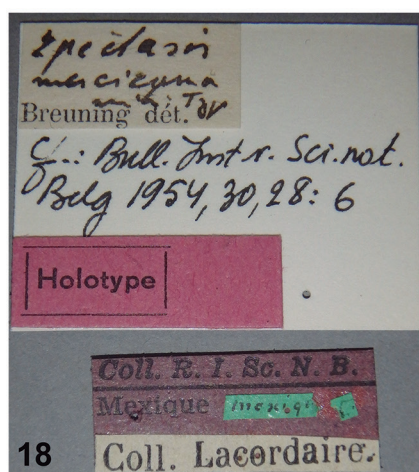 Epectasis
mexicana
mihi Typ
Breuning dét.
cf.: Bull. Inst. r. Sci. nat.
Belg 1954, 30, 28: 6
Holotype
Coll. R. I. Sc. N. B.
Mexique mexiq
18 Coll. Lacordaire.